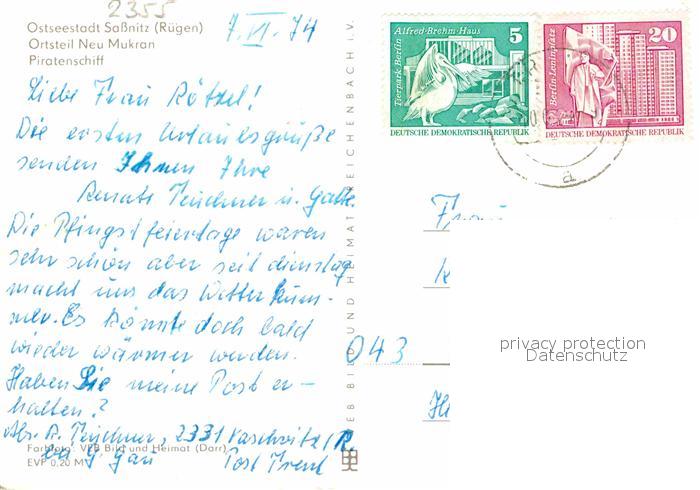 2355
Ostseestadt Saßnitz (Rügen)
Ortsteil Neu Mukran
Piratenschiff
7. VI. 74
Liebe Frau Rötzel!
Die ersten Urlaubsgrüße
senden Ihnen Ihre
Renate Teichner u. Gatte.
Die Pfingstfeiertage waren
sehr schön aber seit dienstag
macht uns das Wetter kum-
mer. Es könnte doch bald
wieder wärmer werden.
Haben Sie meine Post er-
halten?
Abs. R. Teichner, 2331 /R
bei G. Gau Post
Farbfoto: VEB Bild und Heimat (Darr)
EVP 0,20 M
VEB BILD UND HEIMAT REICHENBACH i.V.
Alfred-Brehm-Haus
5
Tierpark Berlin
DEUTSCHE DEMOKRATISCHE REPUBLIK
20
Berlin-Leninplatz
DEUTSCHE DEMOKRATISCHE REPUBLIK
a
Frau
043
privacy protection
Datenschutz